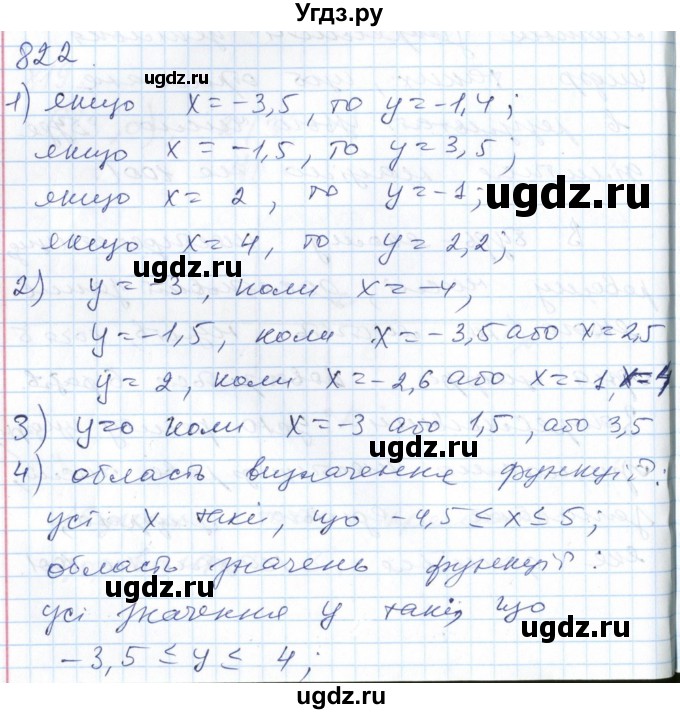 Угдз.ру
822
1) якщо x = -3,5, то y = -1,4;
якщо x = -1,5, то y = 3,5;
ugdz.ru
якщо x = 2, то y = -1;
ugdz.ru
якщо x = 4, то y = 2,2;
ugdz.ru
2) y = -3, коли x = -4,
y = -1,5, коли x = -3,5 або x = 2,5
ugdz.ru
y = 2, коли x = -2,6 або x = -1, x = 4
3) y = 0 коли x = -3 або 1,5, або 3,5
ugdz.ru
4) область визначення функції:
ugdz.ru
усі x такі, що -4,5 ≤ x ≤ 5;
область значень функції:
ugdz.ru
усі значення y такі, що
ugdz.ru
-3,5 ≤ y ≤ 4;
ugdz.ru